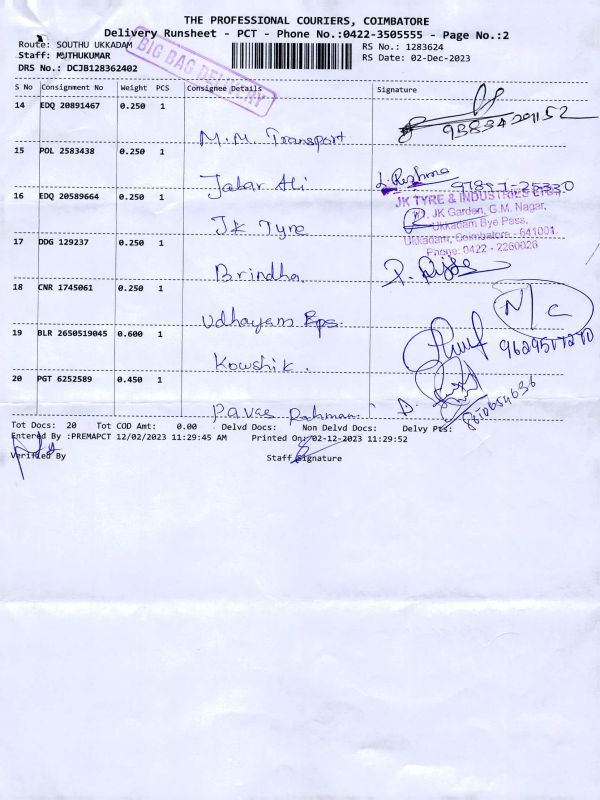 THE PROFESSIONAL COURIERS, COIMBATORE
Delivery Runsheet - PCT - Phone No.:0422-3505555 - Page No.:2
Route: SOUTHU UKKADAM
RS No.: 1283624
Staff: MUTHUKUMAR
RS Date: 02-Dec-2023
DRS No.: DCJB128362402
BIG BAG DELIVERY
S No Consignment No Weight PCS Consignee Details Signature
14 EDQ 20891467 0.250 1
M.M. Transport
15 POL 2583438 0.250 1
Jabar Ali
J. Reshma
16 EDQ 20589664 0.250 1
JK Tyre
JK TYRE & INDUSTRIES LTD.,
JK Garden, G.M. Nagar,
Ukkadam Bye Pass,
Ukkadam, Coimbatore - 641001.
Phone: 0422 - 2260026
17 DDG 129237 0.250 1
Brindha
18 CNR 1745061 0.250 1
Udhayam Eps.
N/C
19 BLR 2650519045 0.600 1
Kowshik.
20 PGT 6252589 0.450 1
Pavas Rahman
8610654636
Tot Docs: 20 Tot COD Amt: 0.00 Delvd Docs: Non Delvd Docs: Delvy Pts:
Entered By :PREMAPCT 12/02/2023 11:29:45 AM Printed On: 02-12-2023 11:29:52
Verified By Staff Signature